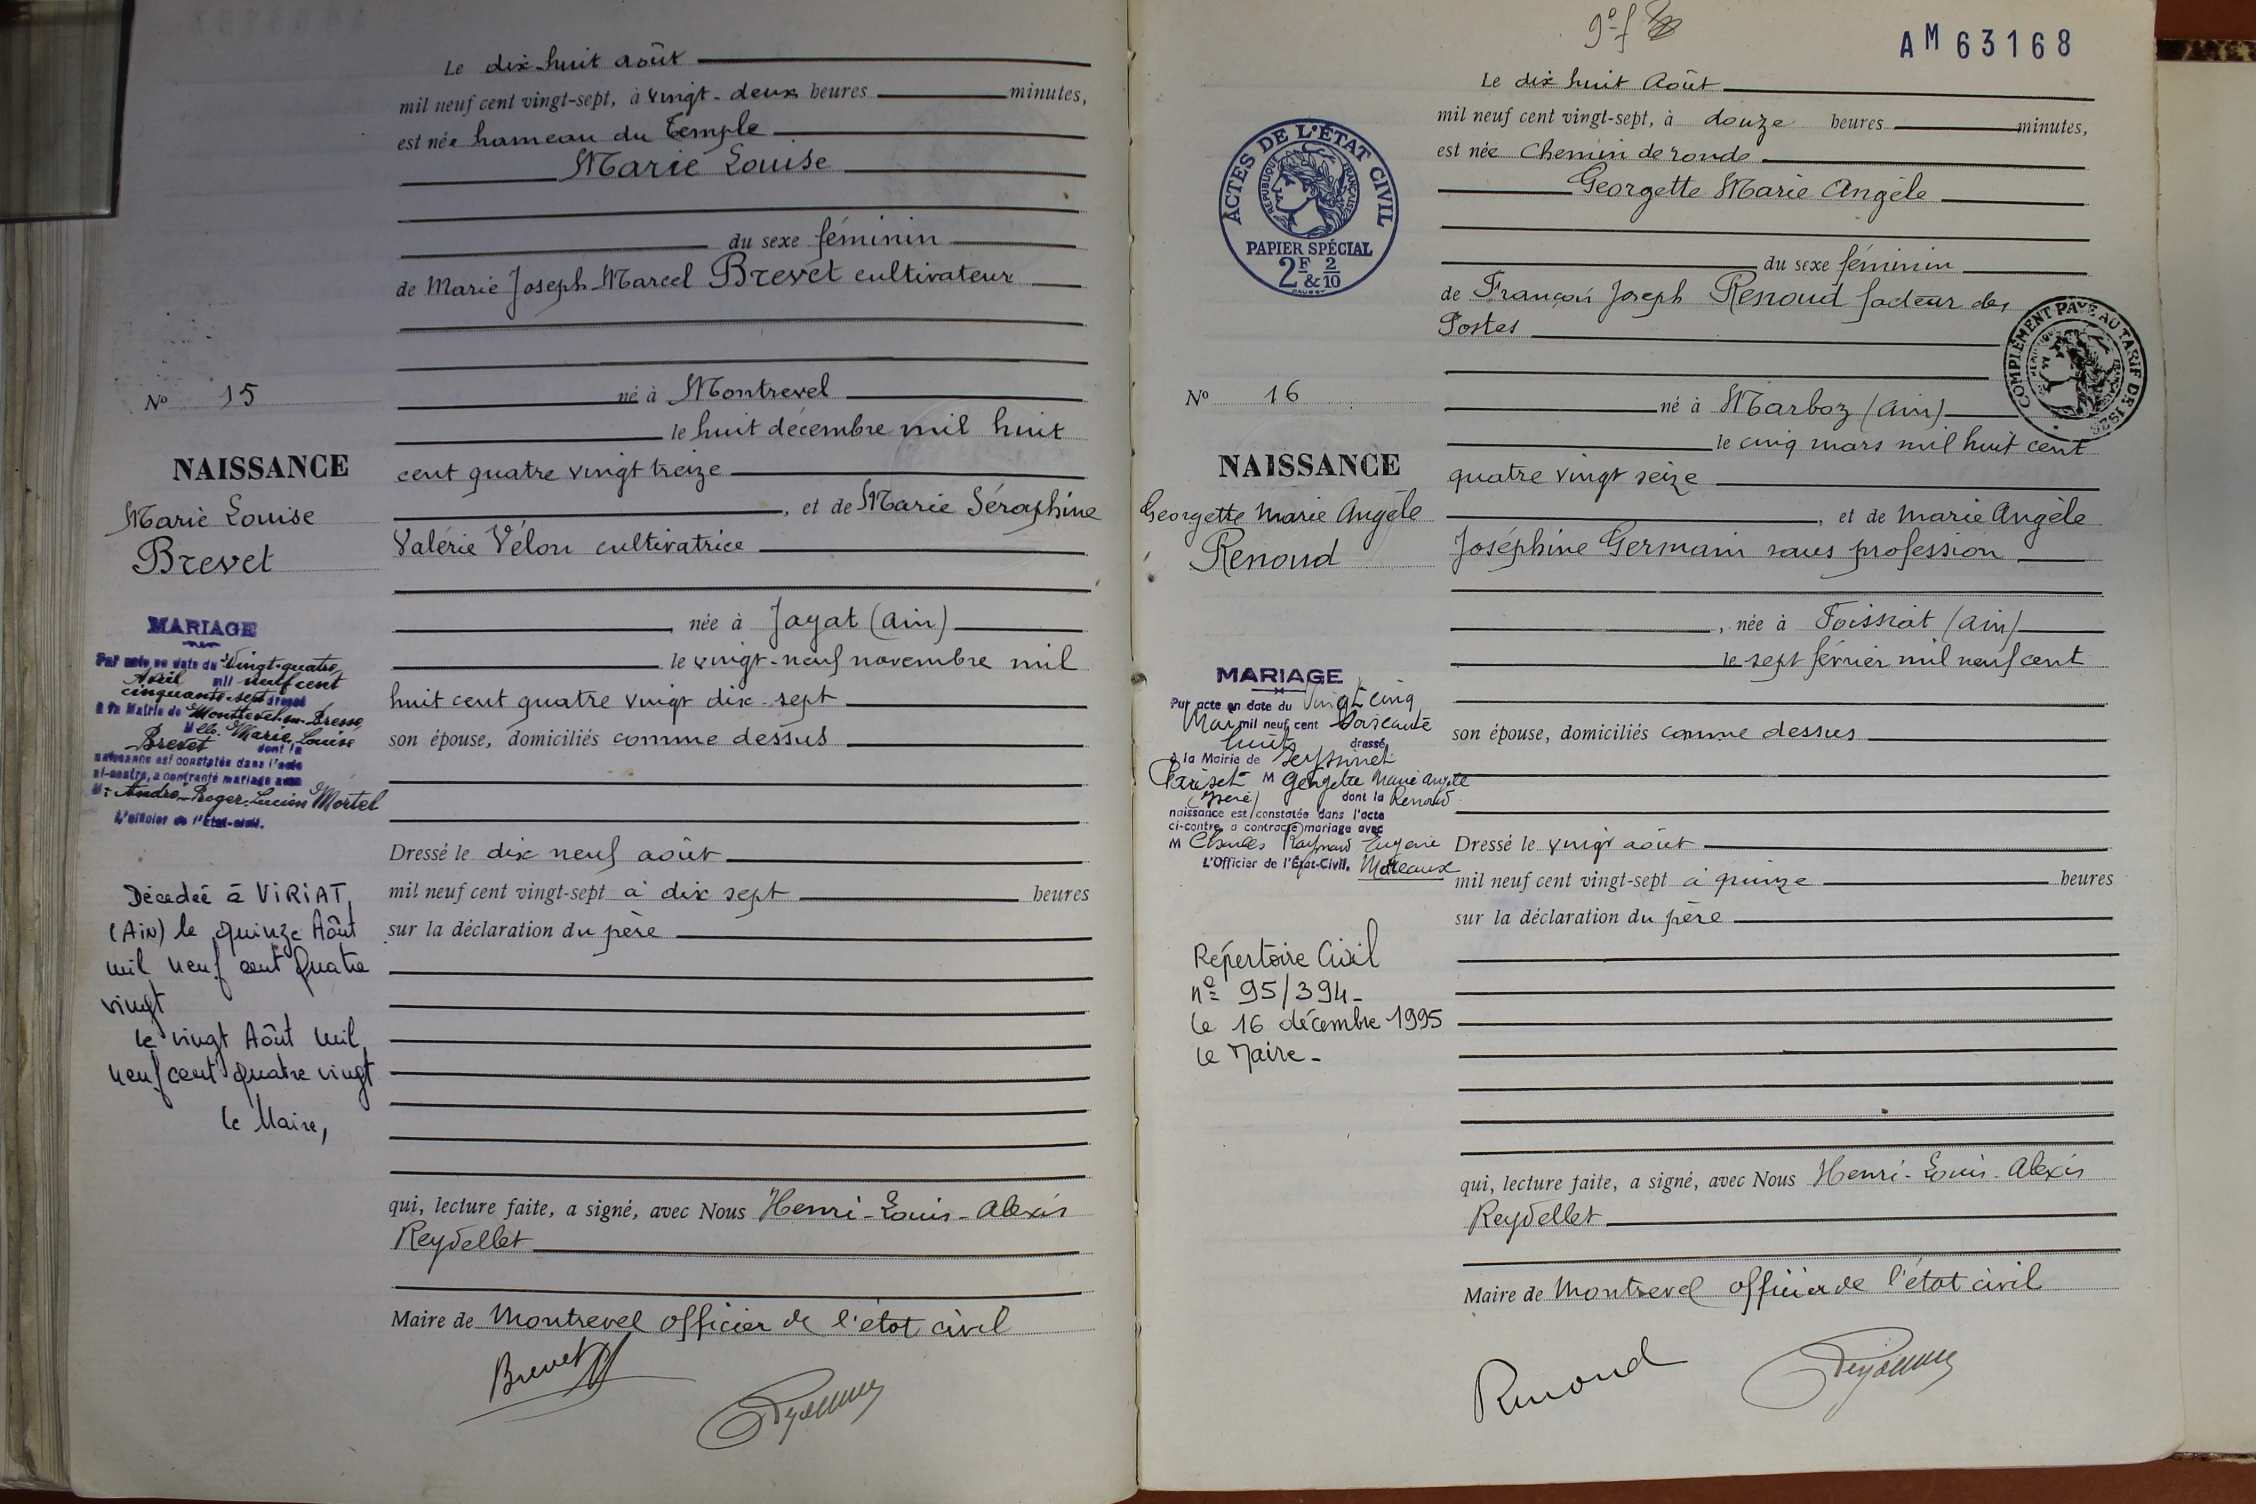 Le dix huit août
mil neuf cent vingt-sept, à vingt-deux heures minutes,
est née hameau du Temple
Marie Louise
du sexe féminin
de Marie Joseph Marcel Brevet cultivateur
né à Montrevel
le huit décembre mil huit
cent quatre vingt treize
, et de Marie Séraphine
Valérie Vélon cultivatrice
née à Jayat (Ain)
le vingt-neuf novembre mil
huit cent quatre vingt dix-sept
son épouse, domiciliés comme dessus
Dressé le dix neuf août
mil neuf cent vingt-sept à dix sept heures
sur la déclaration du père
qui, lecture faite, a signé, avec Nous Henri-Louis-Alexis
Reydellet
Maire de Montrevel officier de l'état civil
Brevet
No 15
NAISSANCE
Marie Louise
Brevet
MARIAGE
Par acte en date du Vingt-quatre
Avril mil neuf cent
cinquante-sept dressé
à la Mairie de Montrevel-en-Bresse
Mlle Marie Louise
Brevet dont la
naissance est constatée dans l'acte
ci-contre, a contracté mariage avec
Mr André-Roger-Lucien Mortel
L'officier de l'État-civil.
Décédée à VIRIAT
(AiN) le quinze Août
mil neuf cent Quatre
vingt
le vingt Août mil
neuf cent quatre vingt
le Maire,
9e f
AM 63168
Le dix huit Août
mil neuf cent vingt-sept, à douze heures minutes,
est née Chemin de ronde
Georgette Marie Angèle
du sexe féminin
de François Joseph Renoud facteur des
Postes
né à Marboz (Ain)
le cinq mars mil huit cent
quatre vingt seize
, et de Marie Angèle
Joséphine Germain sans profession
, née à Foissiat (Ain)
le sept février mil neuf cent
son épouse, domiciliés comme dessus
Dressé le vingt août
mil neuf cent vingt-sept à quinze heures
sur la déclaration du père
qui, lecture faite, a signé, avec Nous Henri-Louis-Alexis
Reydellet
Maire de Montrevel officier de l'état civil
Renoud
ACTES DE L'ÉTAT CIVIL
RÉPUBLIQUE FRANÇAISE
PAPIER SPÉCIAL
2F & 2/10
COMPLÉMENT PAYÉ AU TARIF DE 1926
No 16
NAISSANCE
Georgette Marie Angèle
Renoud
MARIAGE
Par acte en date du Vingt cinq
Mai mil neuf cent Soixante
huit dressé
à la Mairie de Seyssinet
Pariset M Georgette Marie Angèle
(Isère) dont la Renoud
naissance est constatée dans l'acte
ci-contre, a contracté mariage avec
M Charles Raymond Eugène
L'Officier de l'État-Civil, Moteaux
Répertoire Civil
no 95/394-
le 16 décembre 1995
le Maire-